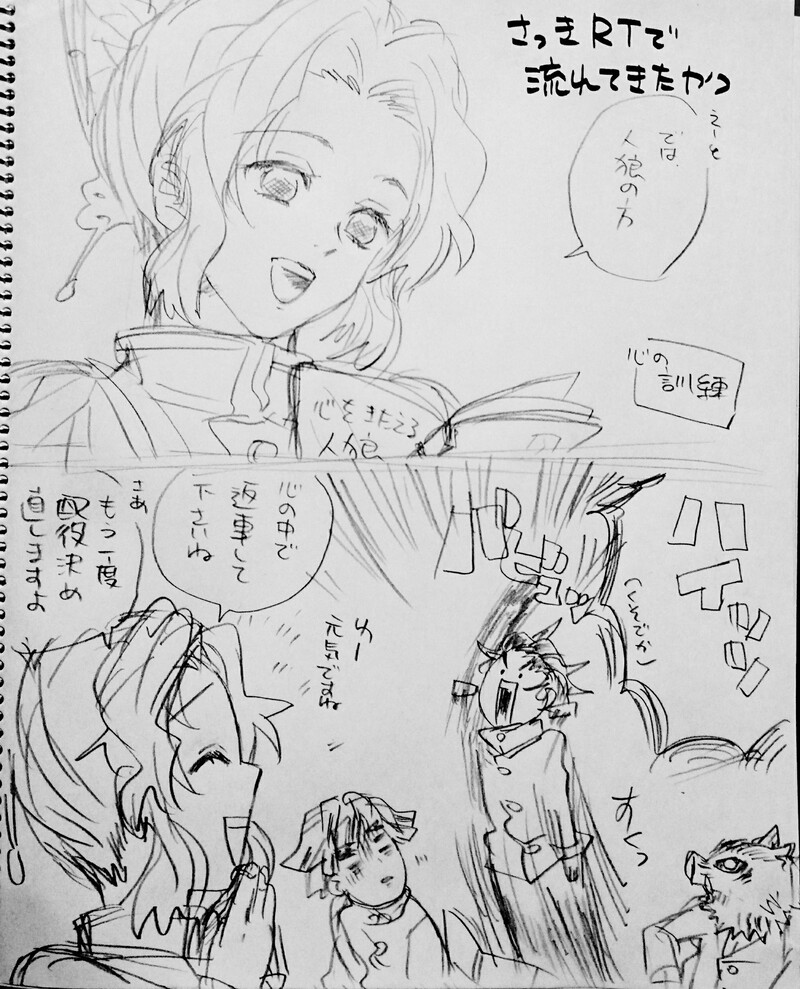 さっきRTで
流れてきたかつ
えーと
では、
人狼の方
心の
訓練
心をきたえる
人狼
ハイッッッ
心の中で
返事して
下さいね
わー
元気ですね
すくっ
さあ
もう一度
配役決め
直しますよ